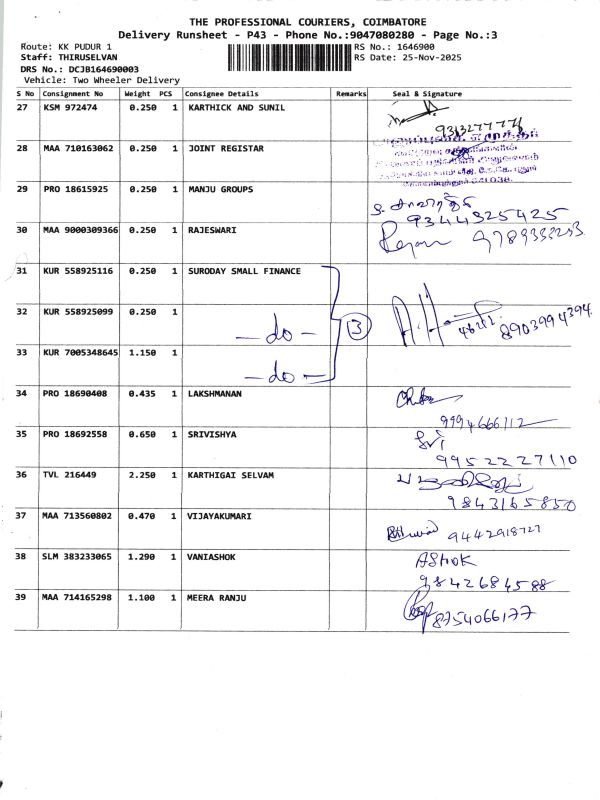 THE PROFESSIONAL COURIERS, COIMBATORE
Delivery Runsheet - P43 - Phone No.:9047080280 - Page No.:3
Route: KK PUDUR 1
RS No.: 1646900
Staff: THIRUSELVAN
RS Date: 25-Nov-2025
DRS No.: DCJB164690003
Vehicle: Two Wheeler Delivery
S No Consignment No Weight PCS Consignee Details Remarks Seal & Signature
27 KSM 972474 0.250 1 KARTHICK AND SUNIL
28 MAA 710163062 0.250 1 JOINT REGISTAR
29 PRO 18615925 0.250 1 MANJU GROUPS
9344325425
30 MAA 9000309366 0.250 1 RAJESWARI
31 KUR 558925116 0.250 1 SURODAY SMALL FINANCE
32 KUR 558925099 0.250 1
- do - 3 8903994394
33 KUR 7005348645 1.150 1
- do -
34 PRO 18690408 0.435 1 LAKSHMANAN
9994666112
35 PRO 18692558 0.650 1 SRIVISHYA Sri
9952227110
36 TVL 216449 2.250 1 KARTHIGAI SELVAM
9843165850
37 MAA 713560802 0.470 1 VIJAYAKUMARI
9442918727
38 SLM 383233065 1.290 1 VANIASHOK ASHOK
9842684588
39 MAA 714165298 1.100 1 MEERA RANJU
8754066177